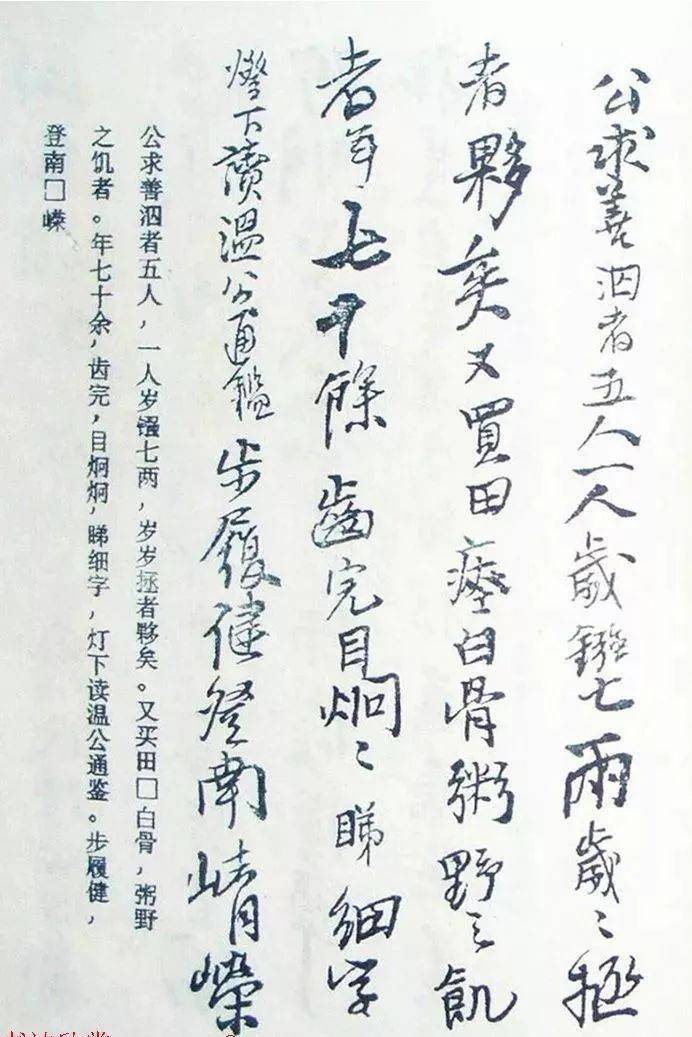 公求善泅者五人一人歲鏹七兩歲〻拯
者夥矣又買田瘗白骨粥野之飢
者年七十餘齒完目炯〻睇細字
燈下讀溫公通鑑步履健登南崝嶸
公求善泅者五人，一人岁镪七两，岁岁拯者夥矣。又买田□白骨，粥野
之饥者。年七十余，齿完，目炯炯，睇细字，灯下读温公通鉴。步履健，
登南□嵘